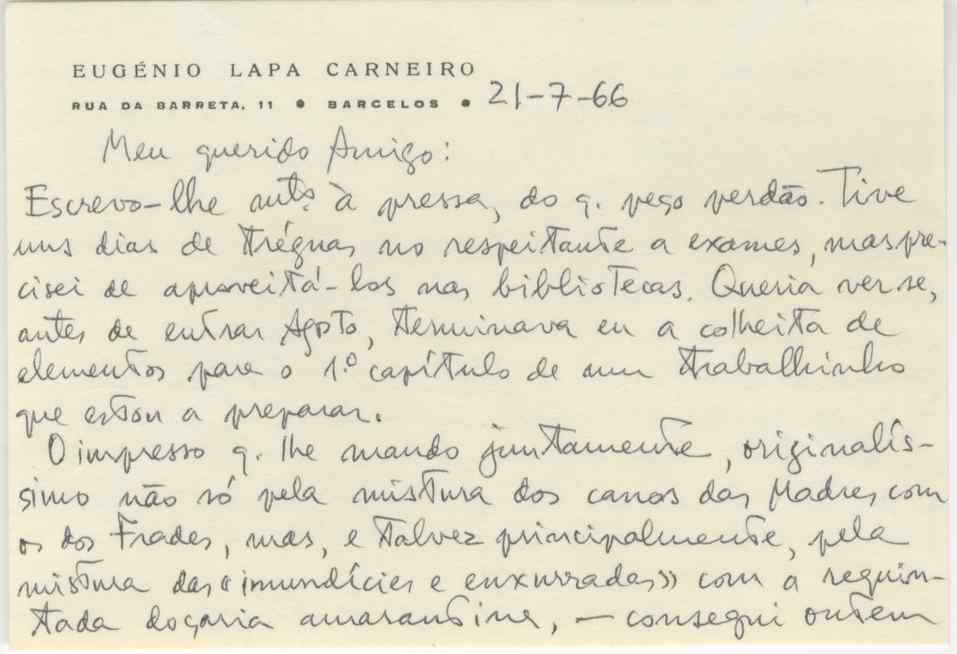 EUGÉNIO LAPA CARNEIRO
RUA DA BARRETA, 11 • BARCELOS • 21-7-66
Meu querido Amigo:
Escrevo-lhe mtº à pressa, do q. peço perdão. Tive
uns dias de tréguas no respeitante a exames, mas pre-
cisei de aproveitá-los nas bibliotecas. Queria ver se,
antes de entrar Agosto, terminava eu a colheita de
elementos para o 1.º capítulo de um trabalhinho
que estou a preparar.
O impresso q. lhe mando juntamente, originalís-
simo não só pela mistura dos canos das Madres com
os dos Frades, mas, e talvez principalmente, pela
mistura das «imundícies e enxurradas» com a requin-
tada doçaria amarantina, — consegui ontem